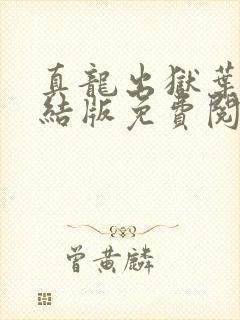 真龍出獄葉
結版免費閱
曾黃麟